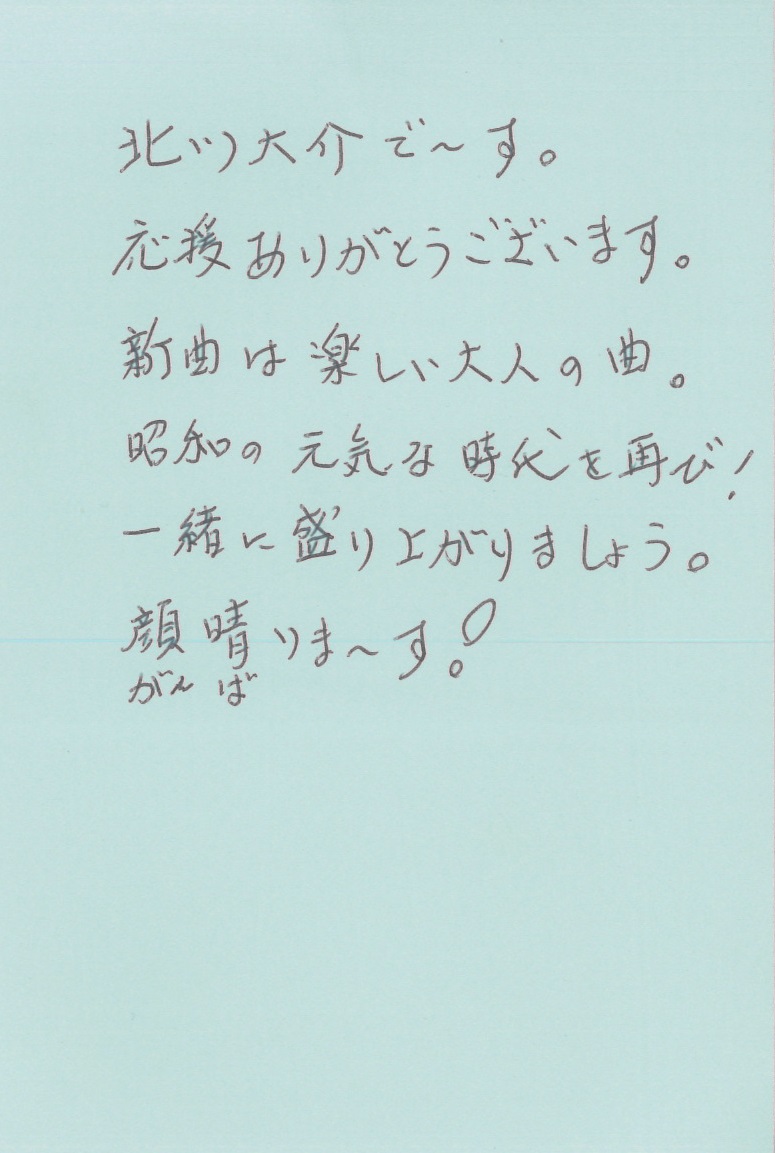 北川大介で〜す。
応援ありがとうございます。
新曲は楽しい大人の曲。
昭和の元気な時代を再び!
一緒に盛り上がりましょう。
顔晴りま〜す!
がんば